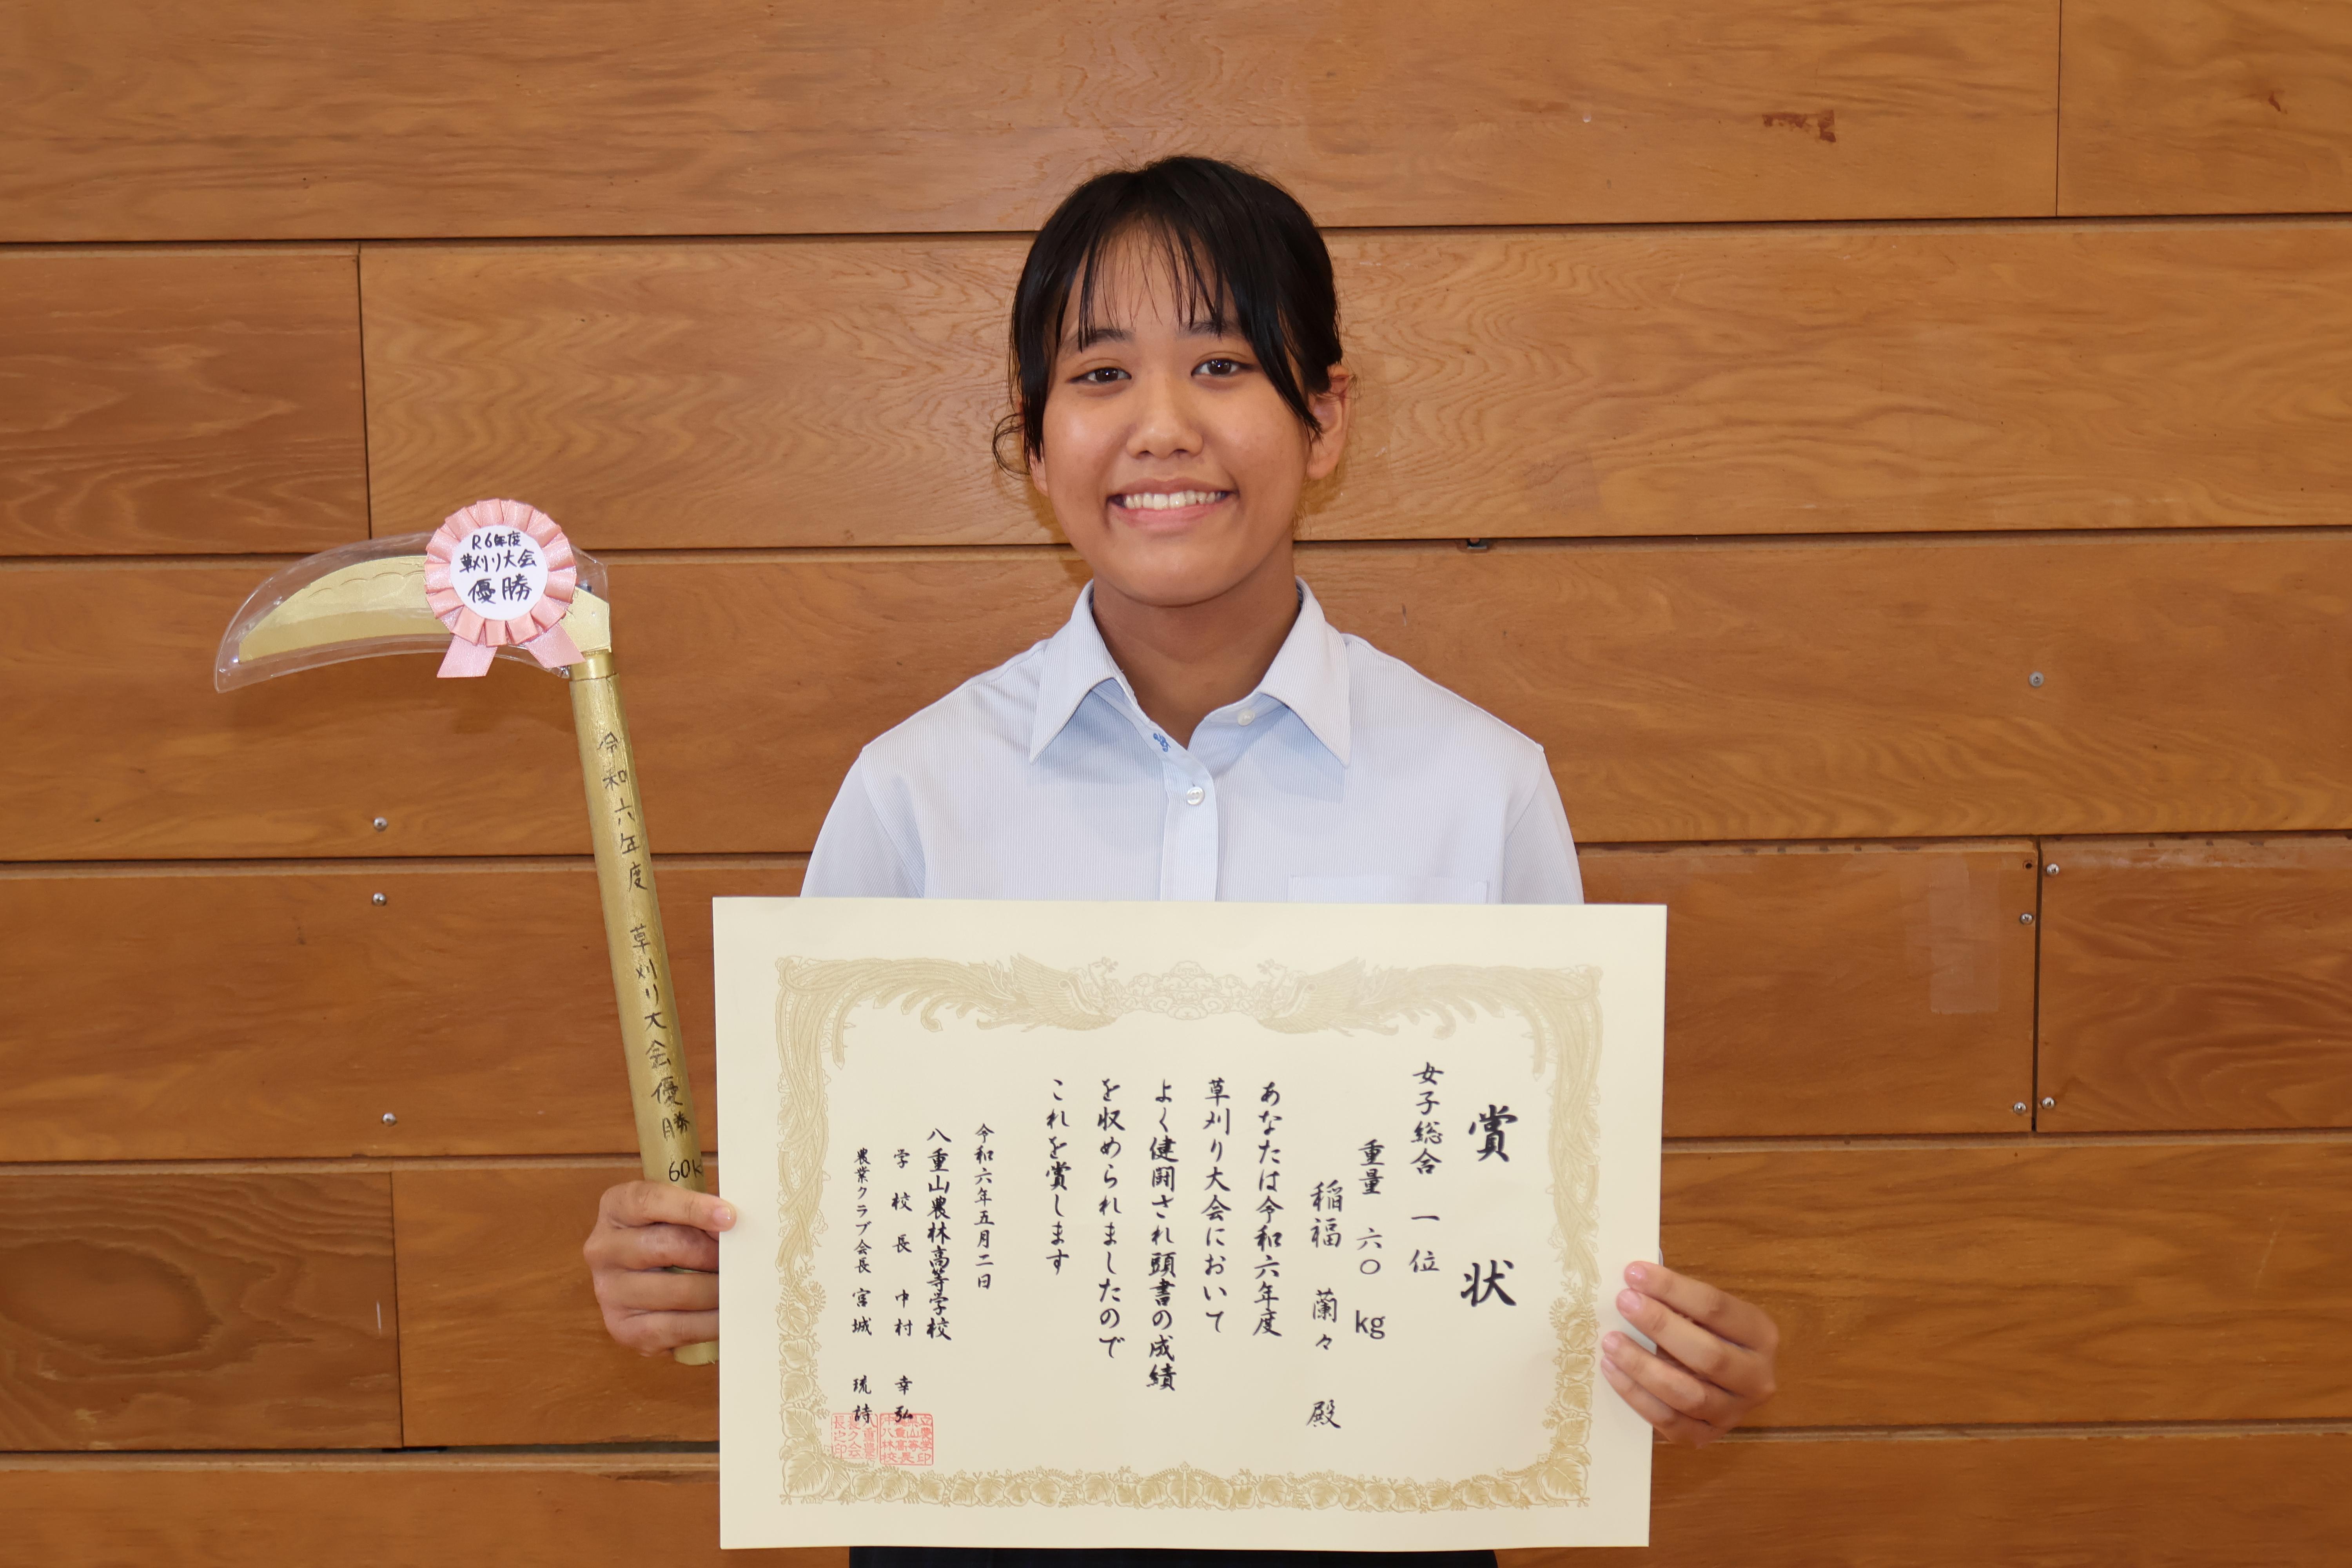 R6年度
草刈り大会
優勝
令和六年度 草刈り大会優勝 60k
賞状
女子総合 一位
重量 六〇 kg
稲福 蘭々 殿
あなたは令和六年度
草刈り大会において
よく健闘され頭書の成績
を収められましたので
これを賞します
令和六年五月二日
八重山農林高等学校
学校長 中村 幸弘
農業クラブ会長 宮城 琉詩